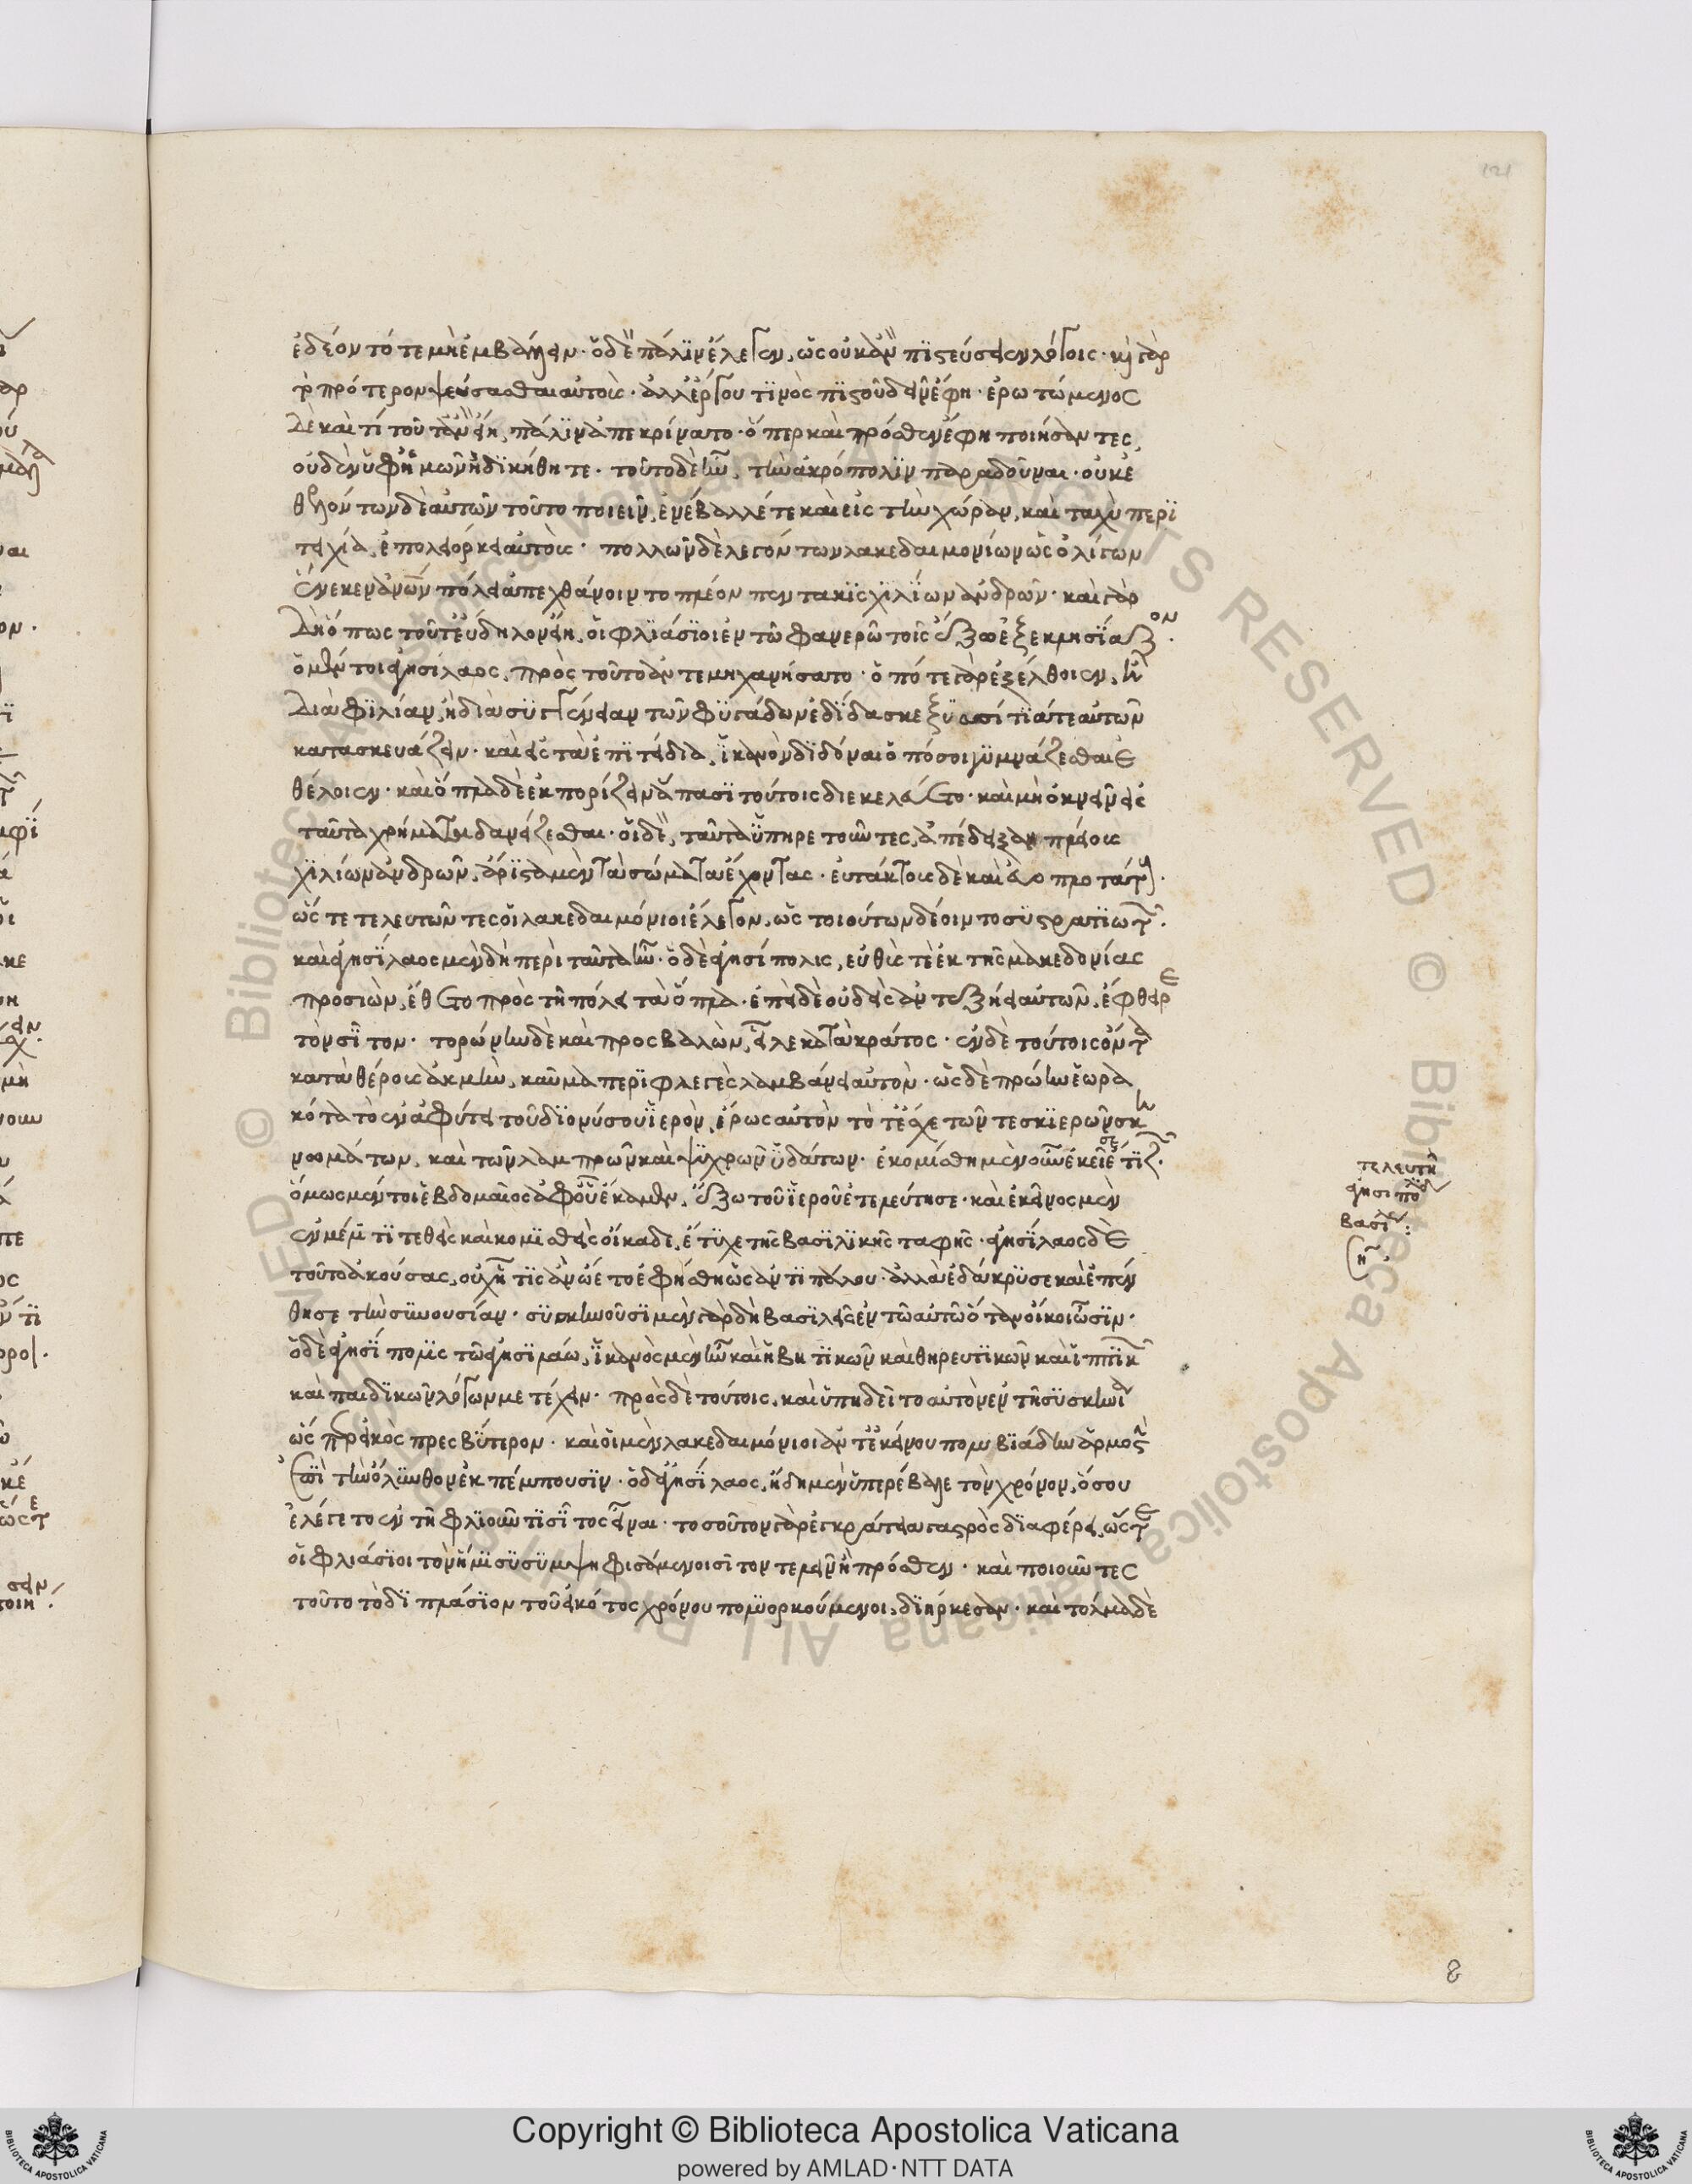 121
ἐδέοντό τε μὴ ἐμβάλλειν. ὁ δὲ πάλιν ἔλεγεν, ὡς οὐκ ἂν πιστεύσειεν λόγοις. καὶ γὰρ
τὸ πρότερον ψεύσασθαι αὐτοὺς. ἀλλ' ἔργου τινὸς πιστοῦ δεῖν ἔφη. ἐρωτώμενος
δὲ καὶ τί τοῦτ' ἂν εἴη, πάλιν ἀπεκρίνατο. ὅπερ καὶ πρόσθεν ἔφη ποιήσαντες,
οὐδὲν ὑφ' ἡμῶν ἠδικήθητε. τοῦτο δὲ ἦν, τὴν ἀκρόπολιν παραδοῦναι. οὐκ ἐ
θελόντων δὲ αὐτῶν τοῦτο ποιεῖν, ἐνέβαλλέ τε καὶ εἰς τὴν χώραν, καὶ ταχὺ περι
τειχίσας ἐπολιόρκει αὐτοὺς. πολλῶν δὲ λεγόντων λακεδαιμονίων ὡς ὀλίγων
ἕνεκεν ἀνθρώπων πόλει ἀπεχθάνοιντο πλέον πεντακισχιλίων ἀνδρῶν. καὶ γὰρ
δὴ ὅπως τοῦτ' εὔδηλον εἴη, οἱ φλιάσιοι ἐν τῷ φανερῷ τοῖς ἔξω ἐξεκλησίαζον.
ὁ μέντοι ἀγησίλαος, πρὸς τοῦτο ἀντεμηχανήσατο. ὁπότε γὰρ ἐξέλθοιεν, ἢ
διὰ φιλίαν, ἢ διὰ συγγένειαν τῶν φυγάδων ἐδίδασκε ξυσσίτιά τε αὐτῶν
κατασκευάζειν. καὶ εἰς τὰ ἐπιτήδεια, ἱκανὸν διδόναι ὁπόσοι γυμνάζεσθαι ἐ
θέλοιεν. καὶ ὅπλα δὲ ἐκπορίζειν ἅπασι τούτοις διεκελεύετο. καὶ μὴ ὀκνεῖν εἰς
ταῦτα χρήματα δανείζεσθαι. οἱ δὲ, ταῦτα ὑπηρετοῦντες, ἀπέδειξαν πλείους
χιλίων ἀνδρῶν, ἄριστα μὲν τὰ σώματα ἔχοντας. εὐτάκτους δὲ καὶ εὐοπλοτάτους.
ὥστε τελευτῶντες οἱ λακεδαιμόνιοι ἔλεγον, ὡς τοιούτων δέοιντο συστρατιωτῶν.
καὶ ἀγησίλαος μὲν δὴ περὶ ταῦτα ἦν. ὁ δὲ ἀγησίπολις, εὐθὺς τε ἐκ τῆς μακεδονίας
προσιὼν, ἔθετο πρὸς τῇ πόλει τὰ ὅπλα. ἐπεὶ δὲ οὐδεὶς ἀντεξῄει αὐτῶν, ἔφθειρε
τὸν σῖτον. τορώνην δὲ καὶ προσβαλὼν, εἷλε κατὰ κράτος. ἐν δὲ τούτοις ὄντα
κατὰ θέρους ἀκμὴν, καῦμα περιφλεγὲς λαμβάνει αὐτὸν. ὡς δὲ πρώην ἑωρα
κότα τὸ ἐν ἀφύτει τοῦ διονύσου ἱερὸν, ἔρως αὐτὸν τότ' ἔσχε τῶν τε σκιερῶν σκη
νωμάτων, καὶ τῶν λαμπρῶν καὶ ψυχρῶν ὑδάτων. ἐκομίσθη μὲν οὖν ἐκεῖσε ἔτι ζῶν.
ὅμως μέντοι ἑβδομαῖος ἀφ' οὗ ἔκαμεν, ἔξω τοῦ ἱεροῦ ἐτελεύτησε. καὶ ἐκεῖνος μὲν
ἐν μέλιτι τεθεὶς καὶ κομισθεὶς οἴκαδε, ἔτυχε τῆς βασιλικῆς ταφῆς. ἀγησίλαος δὲ
τοῦτο ἀκούσας, οὐχ ᾗ τις ἂν ᾤετο ἐφήσθη ὡς ἀντιπάλου. ἀλλὰ ἐδάκρυσε καὶ ἐπό
θησε τὴν συνουσίαν. συσκηνοῦσι μὲν γὰρ δὴ βασιλεῖς ἐν τῷ αὐτῷ ὅταν οἴκοι ὦσιν.
ὁ δὲ ἀγησίπολις τῷ ἀγησιλάῳ, ἱκανὸς μὲν ἦν καὶ ἡβητικῶν καὶ θηρευτικῶν καὶ ἱππικῶν
καὶ παιδικῶν λόγων μετέχειν. πρὸς δὲ τούτοις, καὶ ὑπῃδεῖτο αὐτὸν ἐν τῇ συσκηνίᾳ
ὡς εἰκὸς πρεσβύτερον. καὶ οἱ μὲν λακεδαιμόνιοι ἀντ' ἐκείνου πολυβιάδην ἁρμοστὴν
ἐπὶ τὴν ὄλυνθον ἐκπέμπουσιν. ὁ δ' ἀγησίλαος, ἤδη μὲν ὑπερέβαλλε τὸν χρόνον, ὅσου
ἐλέγετο ἐν τῇ φλιοῦντι σῖτος εἶναι. τοσοῦτον γὰρ ἐγκράτεια γαστρὸς διαφέρει, ὥστε
οἱ φλιάσιοι τὸν ἥμισυν ψηφισάμενοι σῖτον τελεῖν ἢ πρόσθεν. καὶ ποιοῦντες
τοῦτο τὸ διπλάσιον τοῦ εἰκότος χρόνου πολιορκούμενοι, διήρκεσαν. καὶ τόλμα δὲ
τελευτὴ
ἀγησιπόλιδος
βασιλέως:
Copyright © Biblioteca Apostolica Vaticana
powered by AMLAD·NTT DATA